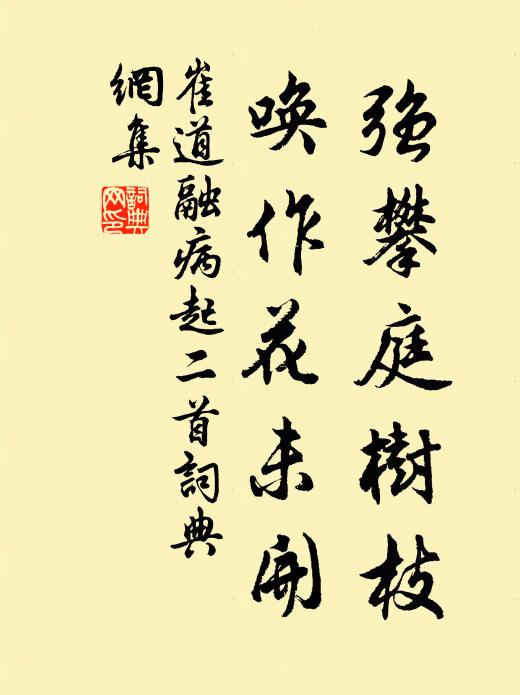 強攀庭樹枝
喚作花未開
崔道融病起二首詞典
網集
詞典網印